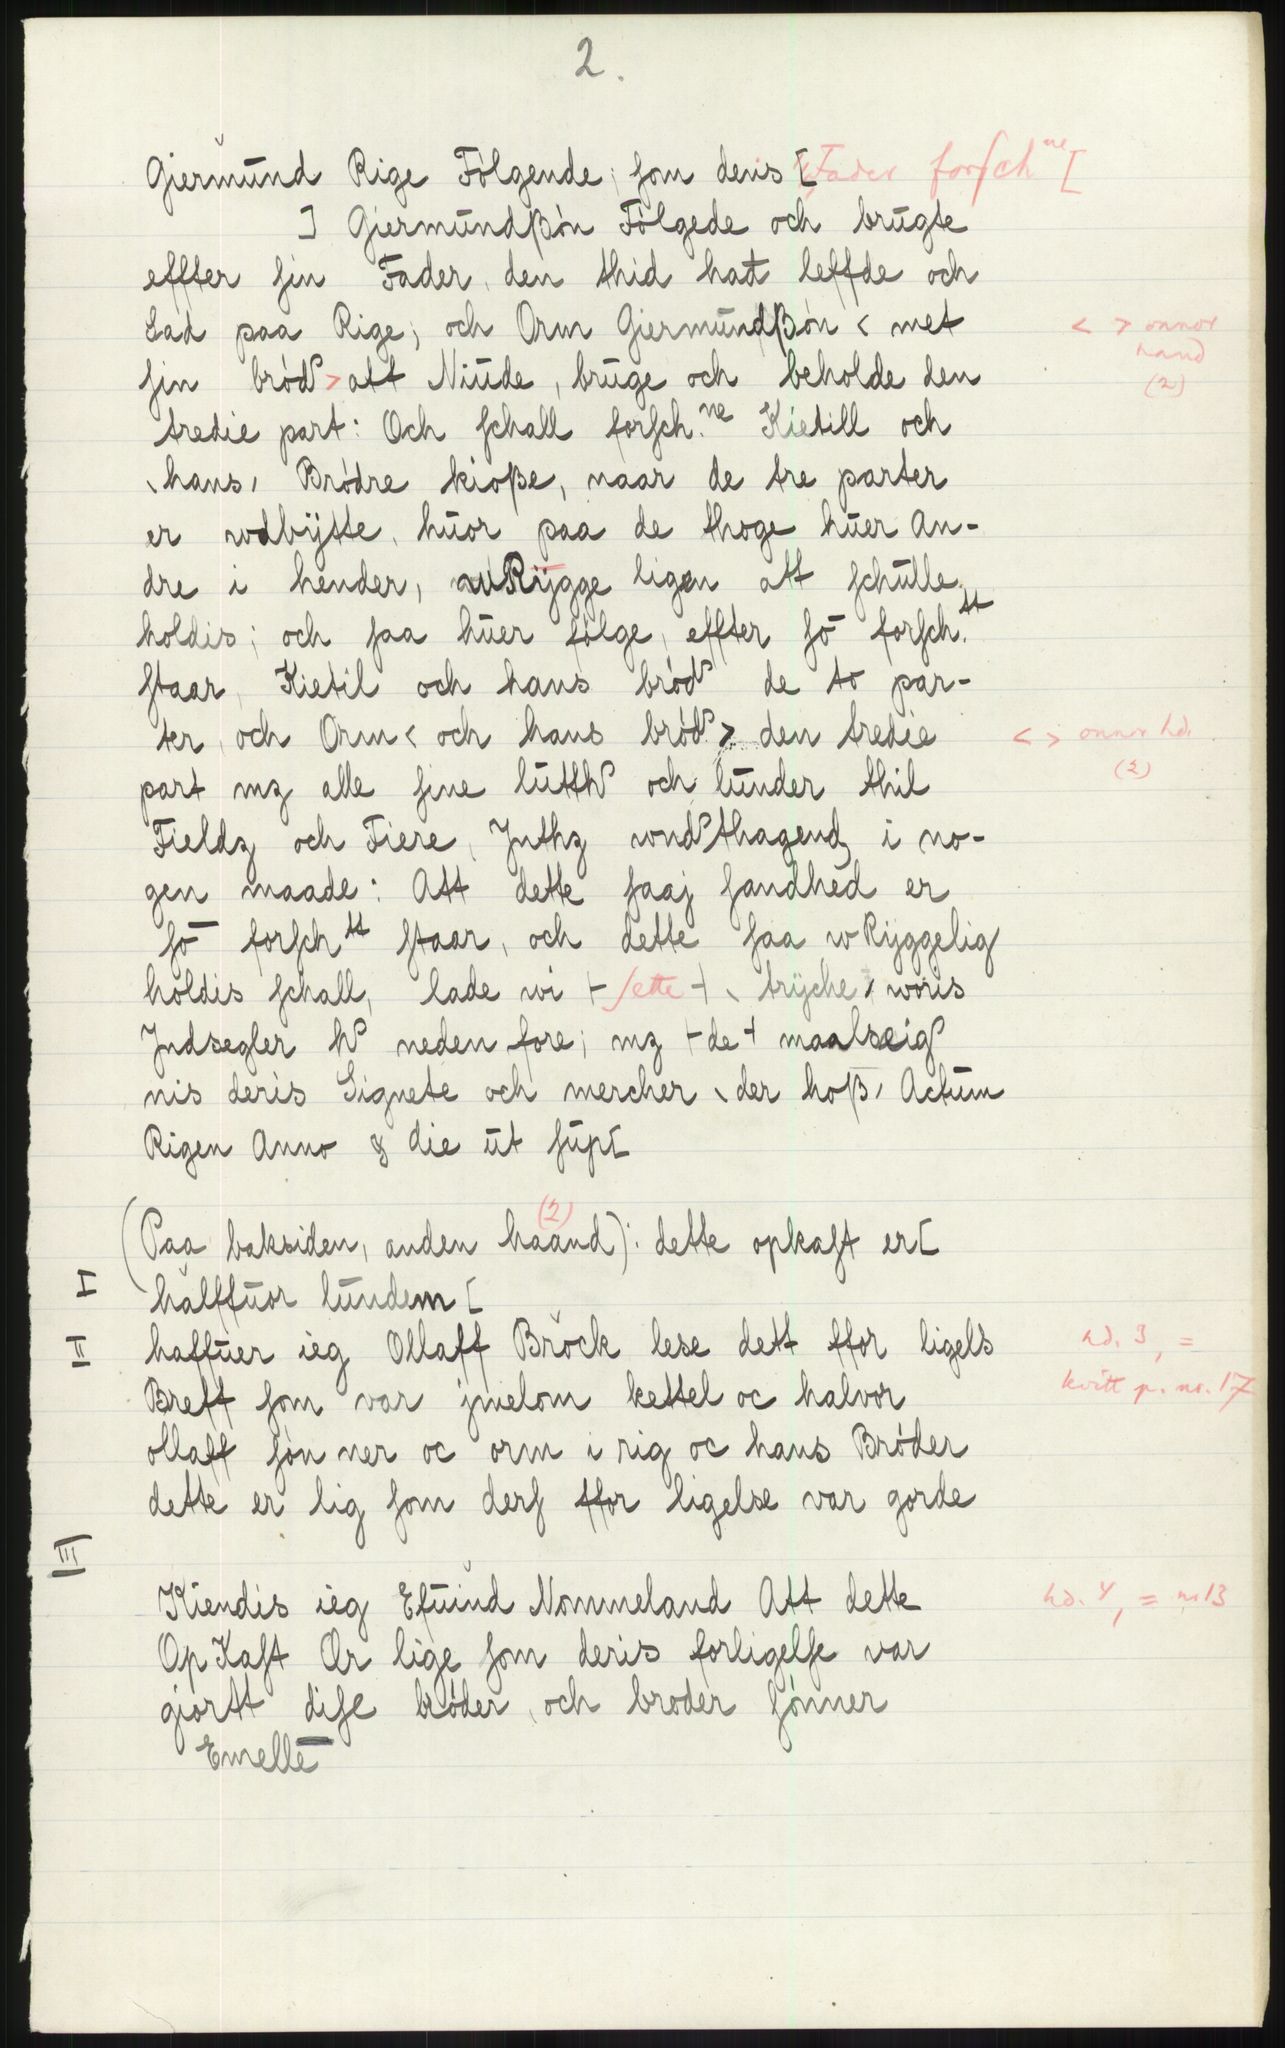 2.
Giermŭnd Rige Fölgende; som deris [ Fader forsch ne [
] Giermündßön Fölgede och brügte
effter sin Fader, den thid hañ leffde och
Sad paa Rige; och Orm Giermündßön < met
< > onnor
hand
(2)
sin bröd > att Niüde, brüge och beholde den
tredie part: Och schall forsch.ne Kietill och
ˎhansˏ Brödre kioße, naar de tre parter
er wdbÿtte, hüor paa de thoge hüer An-
dre i hender, wRÿgge ligen att schülle
holdis; och saa hüer fölge, effter sō forsch.tt
staar, Kietil och hans bröd de to par-
ter, och Orm < och hans bröd > den tredie
< > onnor hd.
(2)
part mz alle sine lütth och lünder thil
Fieldz och Fiere, Jnthz wnd thagend i no-
gen maade: Att dette saaj sandhed er
sō forsch tt staar, och dette saa wRÿggelig
holdis schall, lade wi ⊢ sette ⊣ ˎ trÿche ˏ woris
Jndsegler h neden fore; mz ⊢ de ⊣ maalseig
nis deris Signete och mercher ˎ der hoß ˏ Actum
Rigen Anno & die üt süp[
(Paa baksiden, anden haand (2)): dette opkast er[
I
hălffüor lündem [
II
haffüer ieg Ollaff Brŏck lese dett ffor ligels
hd. 3, =
kvitt p. no. 17
Breff som var jmelom kettel oc halvor
ollaff sön ner oc orm i rig oc hans Bröder
dette er lig som ders ffor ligelse var gorde
III
Kiendis ieg Efŭind Nommeland Att dette
hd. 4, = nr 13
Op Kast Ær lige som deris forligelse var
giortt dise bröder, och broder sönner
Emellē